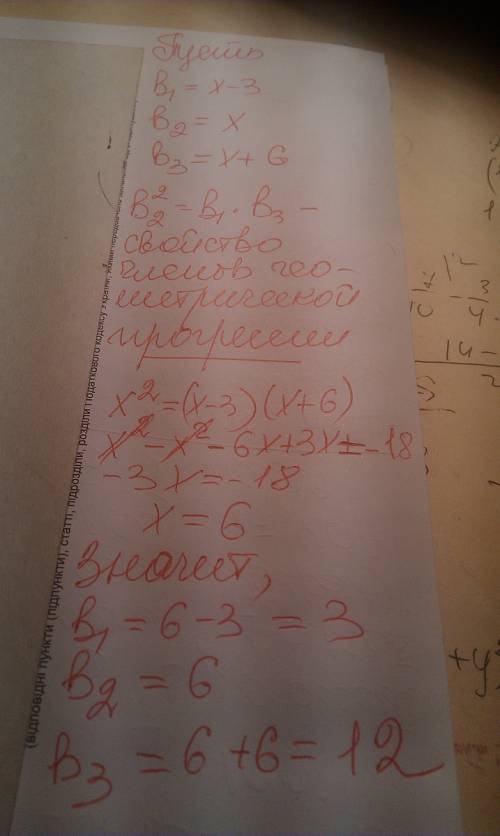 Пусть
B₁ = x - 3
B₂ = x
B₃ = x + 6
B₂² = B₁ · B₃ -
свойство
членов гео-
метрической
прогрессии
x² = (x-3)(x+6)
x² - x² - 6x + 3x = -18
-3x = -18
x = 6
Значит,
B₁ = 6 - 3 = 3
B₂ = 6
B₃ = 6 + 6 = 12
(відповідні пункти (підпункти), статті, підрозділи, розділи Податкового кодексу України,